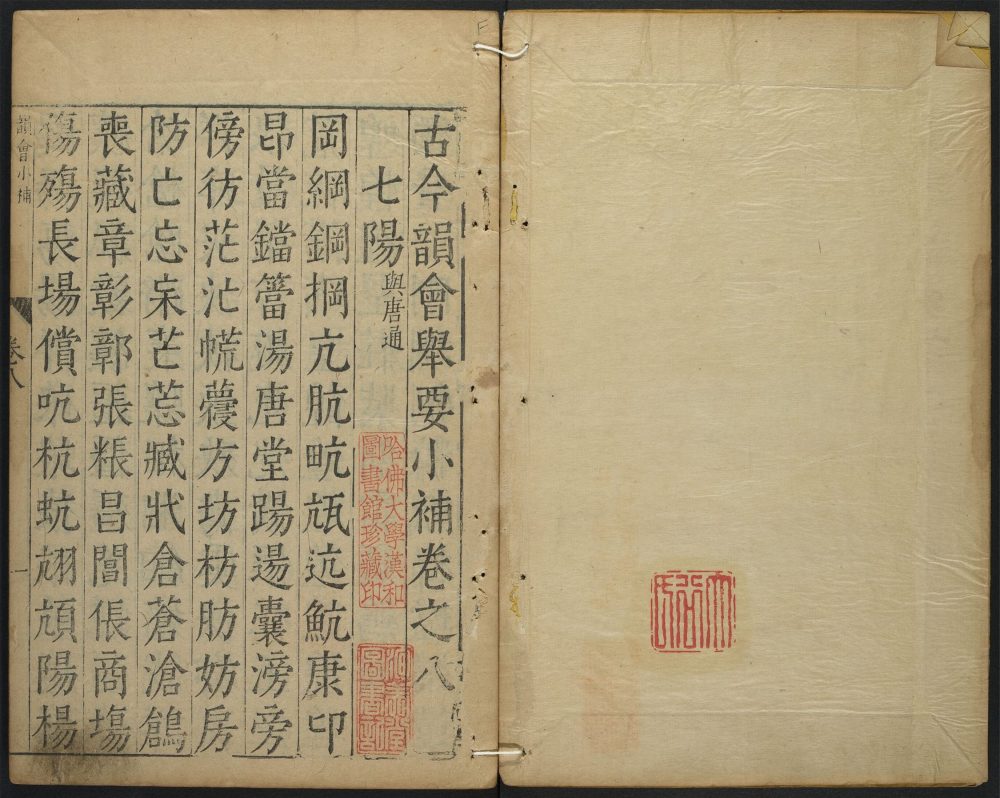 古今韻會舉要小補卷之八
七陽與唐通
岡綱鋼掆亢肮畞瓨迒魧康卬
昂當鐺簹湯唐堂踼逿囊滂旁
傍彷茫汒㡆蘉方坊枋肪妨房
防亡忘宋芒莣臧牂倉蒼滄鶬
喪藏章彰鄣張粻昌閶倀商塲
傷殤長場償吭杭蚢䎋頏陽楊
韻會小補
卷八
一
哈佛大學漢和
圖書館珍藏印